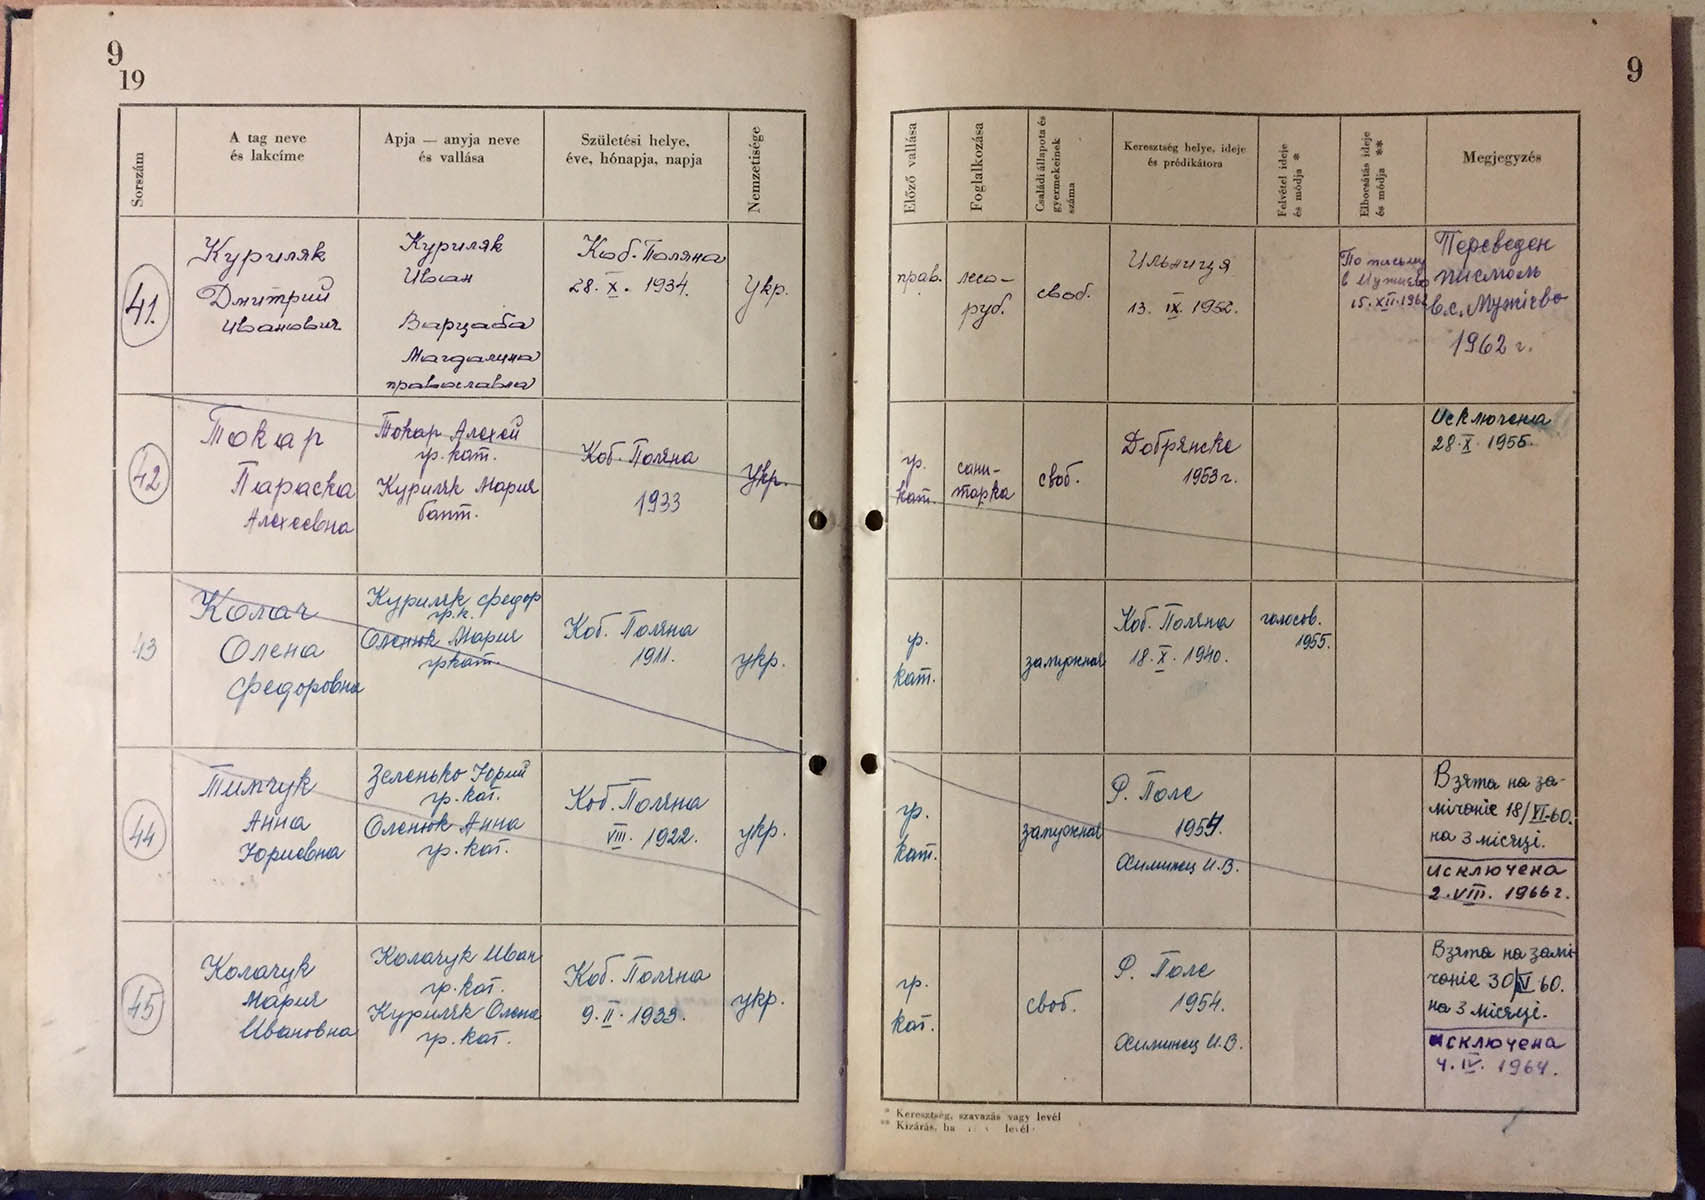 9
19
9
Sorszám
A tag neve
és lakcíme
Apja — anyja neve
és vallása
Születési helye,
éve, hónapja, napja
Nemzetisége
Előző vallása
Foglalkozása
Családi állapota és
gyermekeinek
száma
Keresztség helye, ideje
és prédikátora
Felvétel ideje
és módja *
Elbocsátás ideje
és módja **
Megjegyzés
41.
Куриляк
Дмитрий
Иванович
Куриляк
Иван
Варцаба
Магдалина
православна
Коб. Поляна
28. X. 1934.
Укр.
прав.
лесо-
руб.
своб.
Ильниця
13. IX. 1952.
По письму
в Мужиево
15. XII. 1962
Переведен
письмом
в с. Мужієво
1962 г.
42
Токар
Параска
Алексеевна
Токар Алексей
гр. кат.
Куриляк Мария
бапт.
Коб. Поляна
1933
Укр.
гр.
кат.
сани-
тарка
своб.
Добрянске
1953 г.
Исключена
28. X. 1955.
43
Колач
Олена
Федоровна
Куриляк Федор
гр. к.
Оленюк Мария
гр кат.
Коб. Поляна
1911.
укр.
гр.
кат.
замужная
Коб. Поляна
18. X. 1940.
голосов.
1955.
44
Тимчук
Анна
Юриевна
Зеленько Юрий
гр. кат.
Оленюк Анна
гр. кат.
Коб. Поляна
VIII. 1922.
укр.
гр.
кат.
замужная
Р. Поле
1954.
Осиминец И. В.
Взята на за-
мічаніє 18/VI-60.
на 3 місяці.
исключена
2. VIII. 1966 г.
45
Колачук
Мария
Ивановна
Колачук Иван
гр. кат.
Куриляк Олена
гр. кат.
Коб. Поляна
9. II. 1933.
укр.
гр.
кат.
своб.
Р. Поле
1954.
Осиминец И. В.
Взята на замі-
чаніє 30/V 60.
на 3 місяці.
исключена
4. IV. 1964.
* Keresztség, szavazás vagy levél
** Kizárás, ha levél